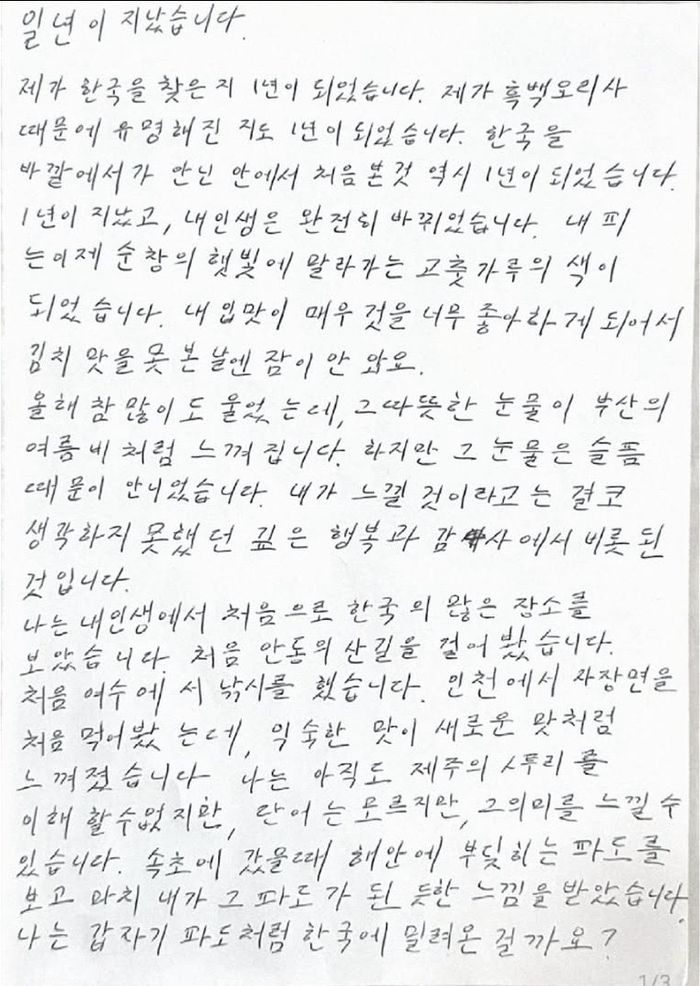 일년이 지났습니다.
제가 한국을 찾은 지 1년이 되었습니다. 제가 흑백요리사
때문에 유명해진 지도 1년이 되었습니다. 한국을
바깥에서가 안닌 안에서 처음 본것 역시 1년이 되었습니다.
1년이 지났고, 내 인생은 완전히 바뀌었습니다. 내 피
는 이제 순창의 햇빛에 말라가는 고춧가루의 색이
되었습니다. 내 입맛이 매우 것을 너무 좋아하게 되어서
김치 맛을 못 본 날엔 잠이 안 와요.
올해 참 많이도 울었는데, 그 따뜻한 눈물이 부산의
여름비처럼 느껴집니다. 하지만 그 눈물은 슬픔
때문이 안니었습니다. 내가 느낄 것이라고는 결코
생각하지 못했던 깊은 행복과 감사에서 비롯된
것입니다.
나는 내 인생에서 처음으로 한국의 많은 장소를
보았습니다. 처음 안동의 산길을 걸어 봤습니다.
처음 여수에서 낚시를 했습니다. 인천에서 자장면을
처음 먹어봤는데, 익숙한 맛이 새로운 맛처럼
느껴졌습니다. 나는 아직도 제주의 사투리를
이해 할수없지만, 단어는 모르지만, 그 의미를 느낄 수
있습니다. 속초에 갔을때 해안에 부딪히는 파도를
보고 마치 내가 그 파도가 된 듯한 느낌을 받았습니다.
나는 갑자기 파도처럼 한국에 밀려온 걸까요?
1/3